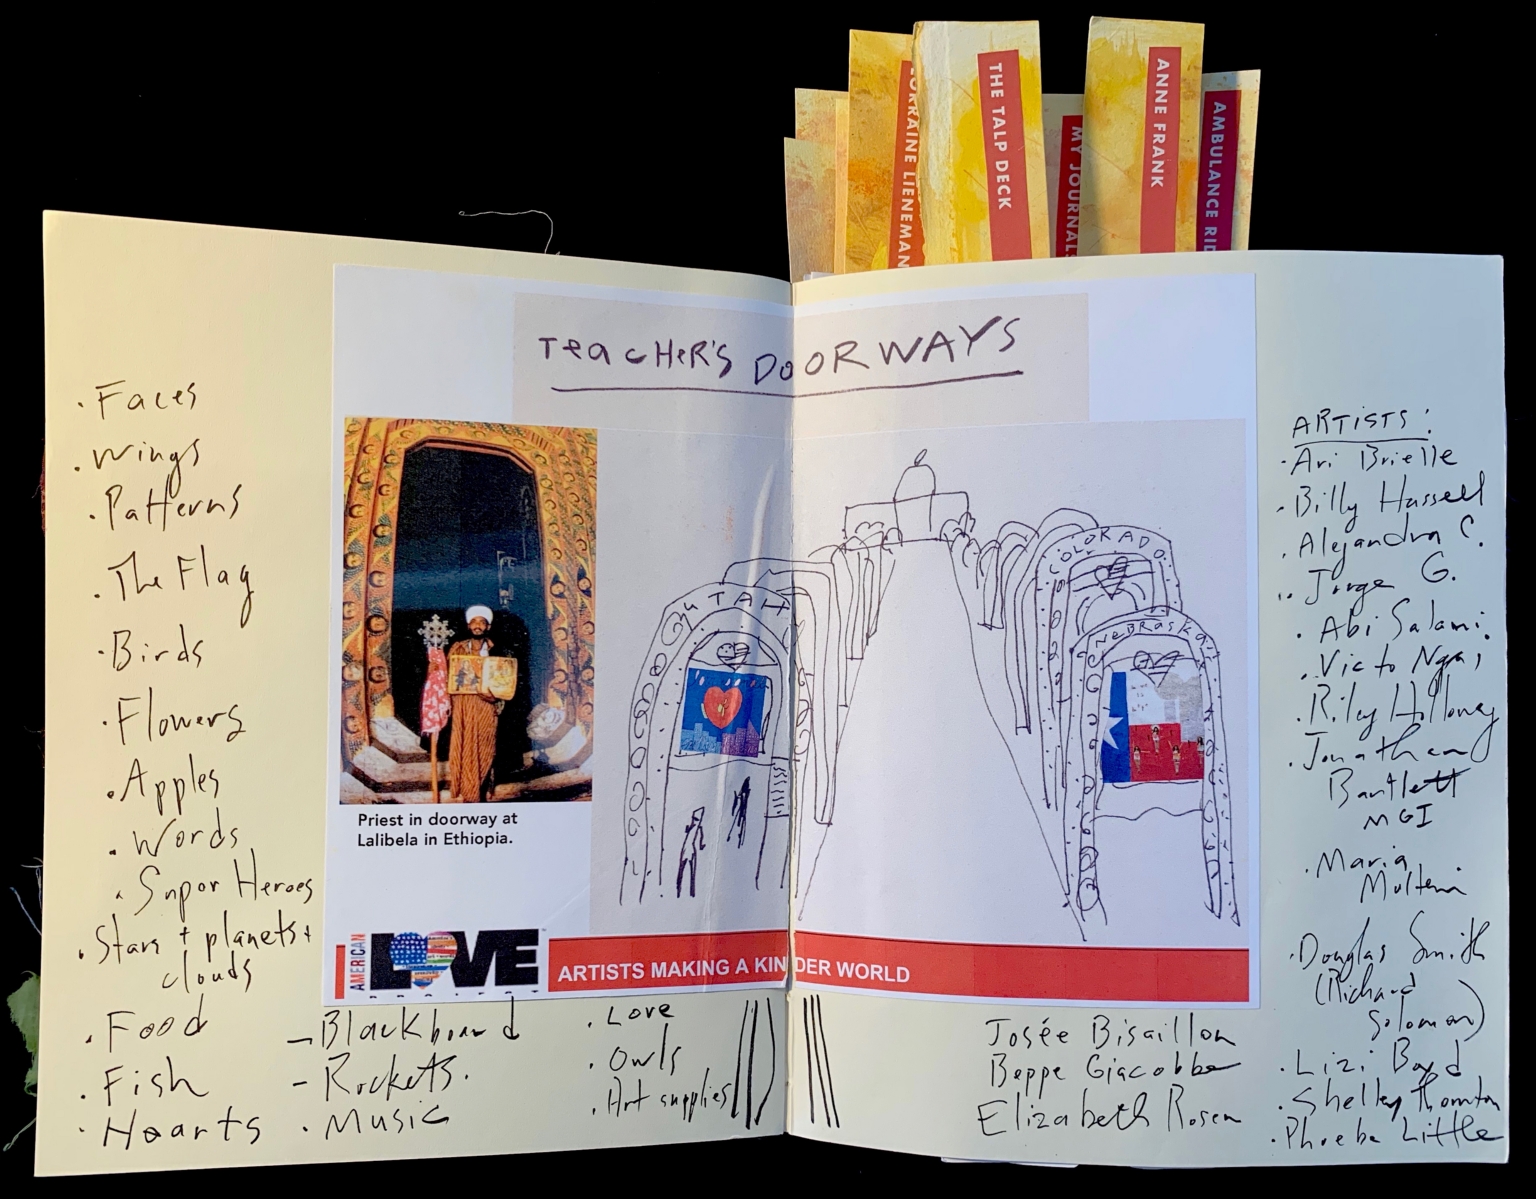 LORRAINE LIENEMAN
THE TALP DECK
MY JOURNALS
ANNE FRANK
AMBULANCE RID
TEACHER'S DOORWAYS
. Faces
. Wings
. Patterns
. The Flag
. Birds
. Flowers
. Apples
. Words
. Supor Heroes
. Stars + planets +
clouds
. Food
. Fish
. Hearts
- Blackboard
- Rockets.
. Music
. Love
. Owls
. Art supplies
Priest in doorway at
Lalibela in Ethiopia.
UTAH
COLORADO
NEBRASKA
AMERICAN
LOVE
PROJECT
ARTISTS MAKING A KINDER WORLD
ARTISTS:
. Ari Brielle
. Billy Hassell
. Alejandra C.
. Jorge G.
. Abi Salami.
. Victo Ngai
. Riley Holloway
. Jonathan
Bartlett
MGI
. Maria
Multeni
. Douglas Smith
(Richard
Solomon)
. Lizi Boyd
. Shelley Thornton
. Phoebe Little
Josée Bisaillon
Beppe Giacobbe
Elizabeth Rosen